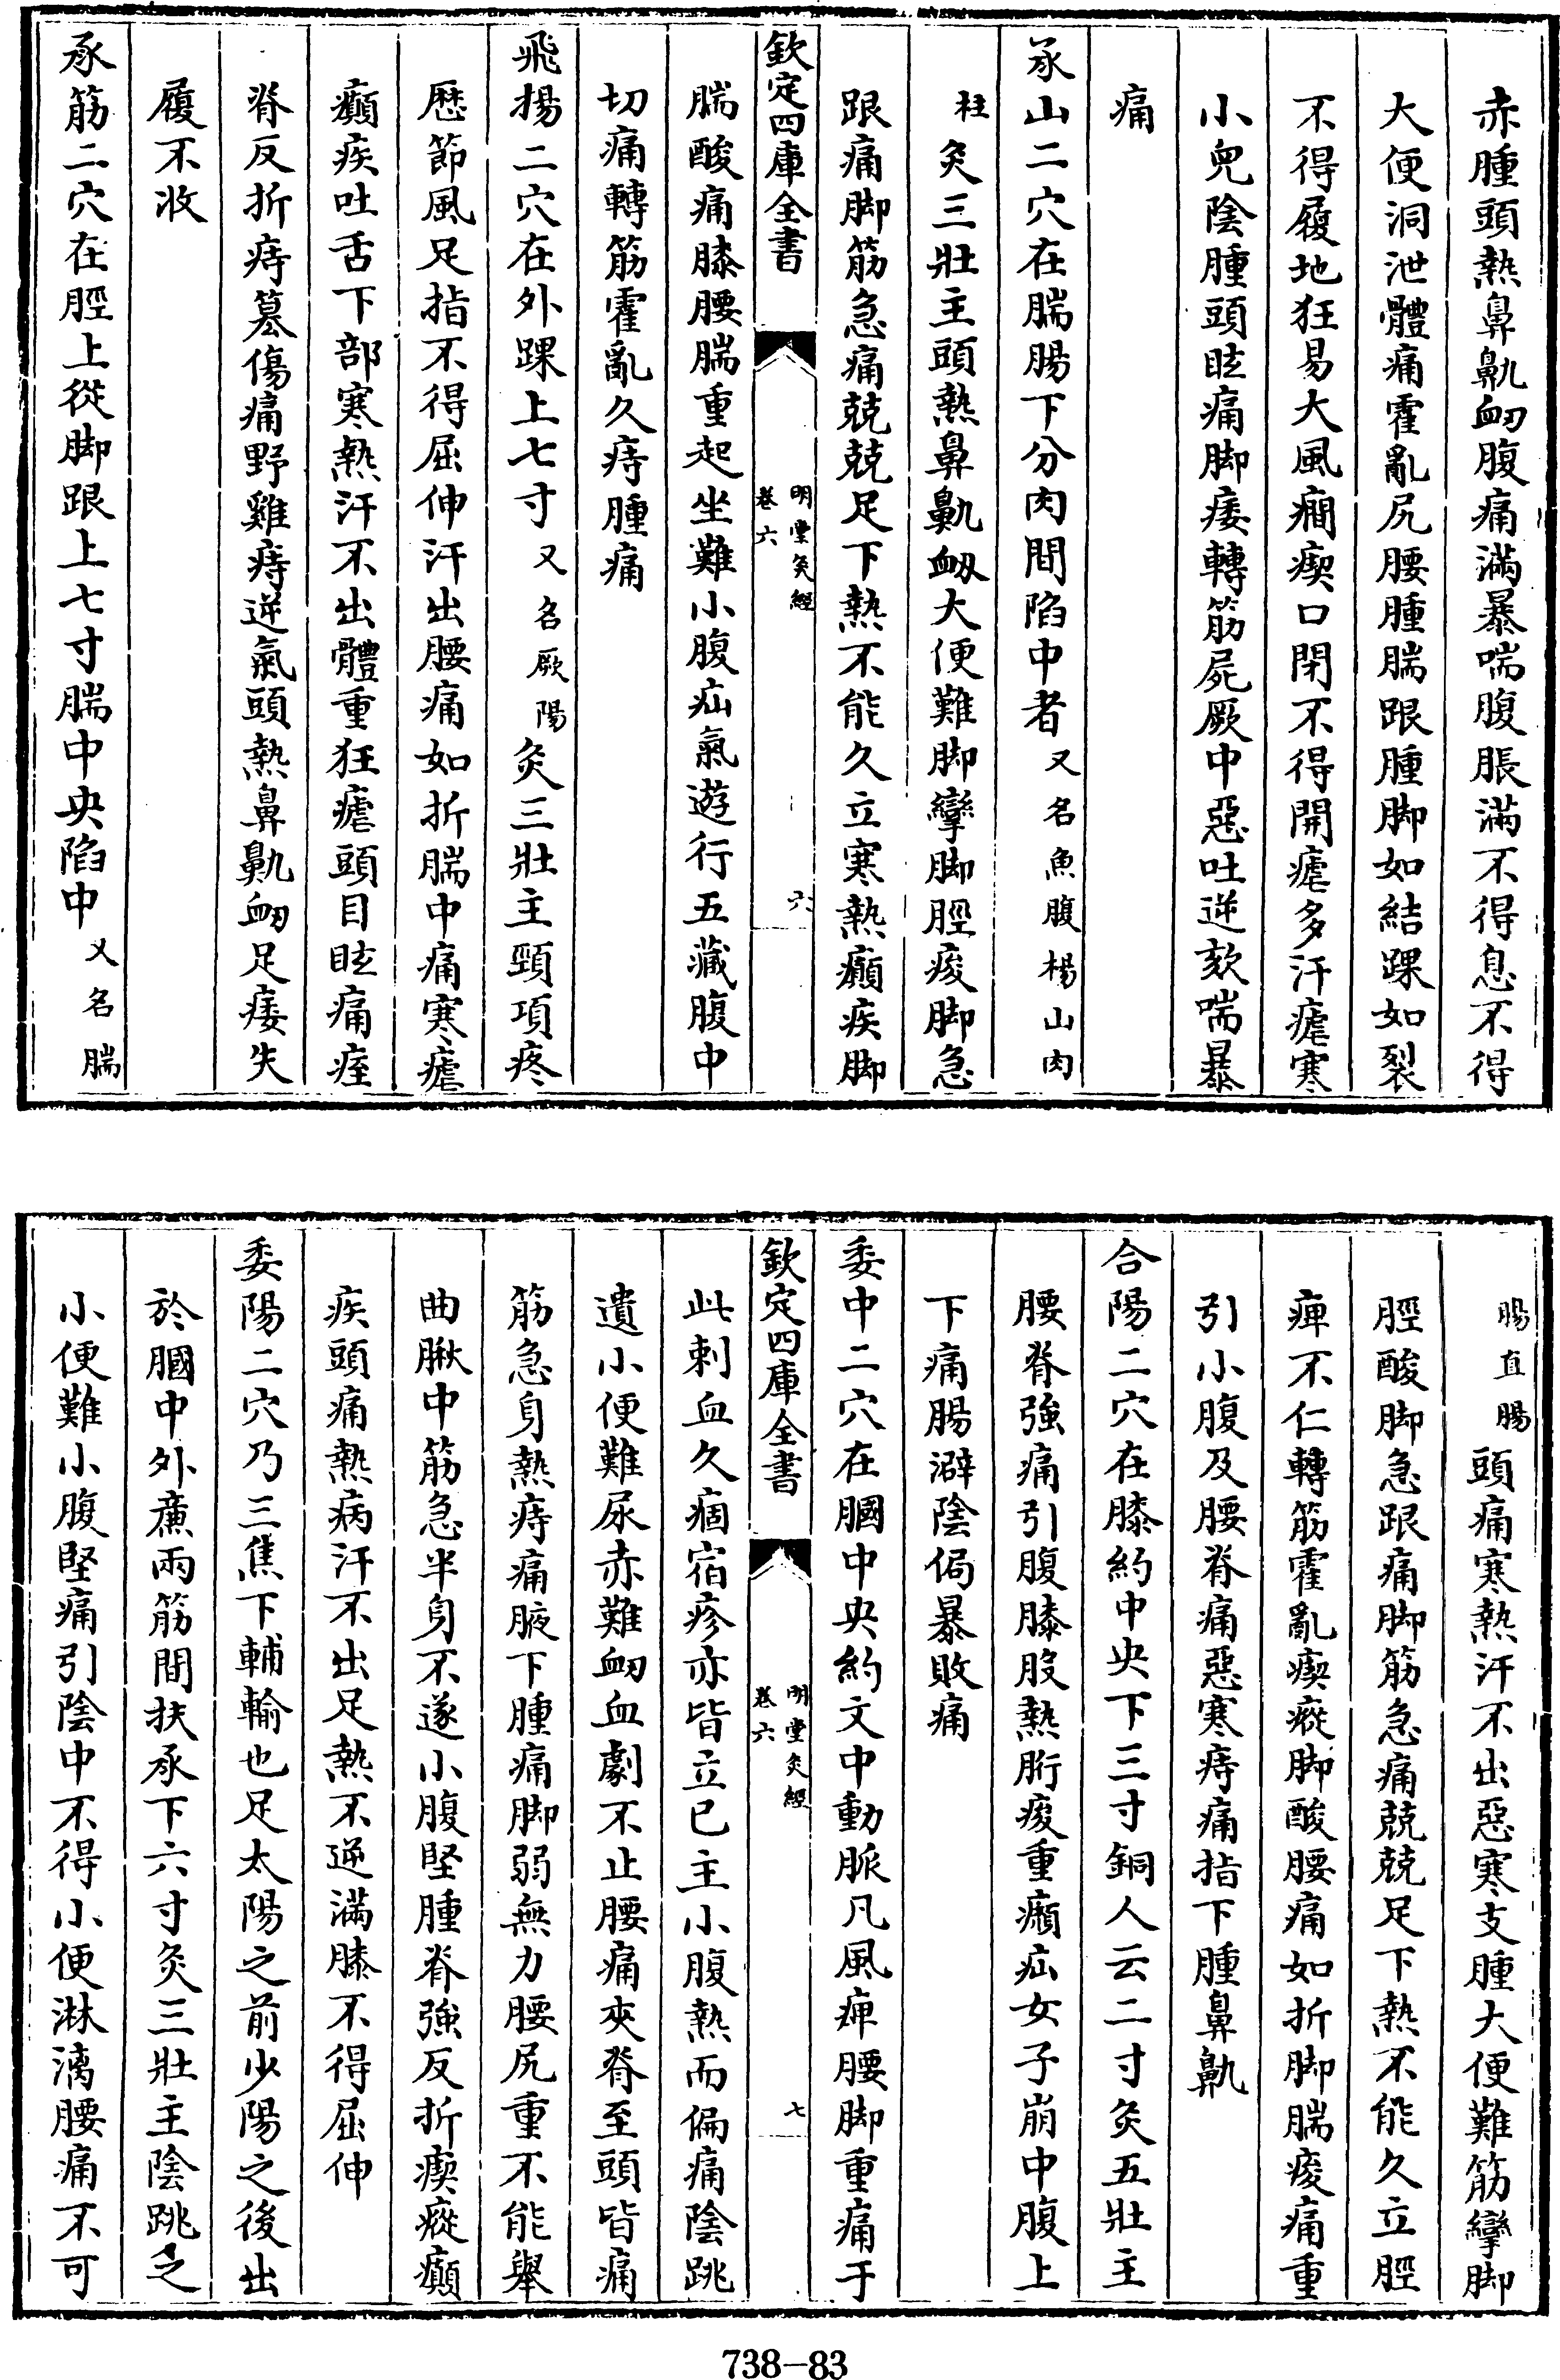 赤腫頭熱鼻鼽衂腹痛滿暴喘腹脹滿不得息不得
大便洞泄體痛霍亂尻腰腫腨跟腫脚如結踝如裂
不得履地狂易大風癇瘈口閉不得開瘧多汗瘧寒
小兒陰腫頭眩痛脚痿轉筋屍厥中惡吐逆欬喘暴
痛
承山二穴在腨腸下分肉間陷中者又名魚腹楊山肉
柱灸三壯主頭熱鼻鼽衂大便難脚攣脚脛痠脚急
跟痛脚筋急痛兢兢足下熱不能久立寒熱癲疾脚
欽定四庫全書
明堂灸經
卷六
六
腨酸痛膝腰腨重起坐難小腹疝氣遊行五藏腹中
切痛轉筋霍亂久痔腫痛
飛揚二穴在外踝上七寸又名厥陽灸三壯主頸項疼
歴節風足指不得屈伸汗出腰痛如折腨中痛寒瘧
癲疾吐舌下部寒熱汗不出體重狂瘧頭目眩痛痓
脊反折痔簒傷痛野雞痔逆氣頭熱鼻鼽衂足痿失
履不收
承筋二穴在脛上從脚跟上七寸腨中央陷中又名腨
腸直腸頭痛寒熱汗不出惡寒支腫大便難筋攣脚
脛酸脚急跟痛脚筋急痛兢兢足下熱不能久立脛
痺不仁轉筋霍亂瘈瘲脚酸腰痛如折脚腨痠痛重
引小腹及腰脊痛惡寒痔痛指下腫鼻鼽
合陽二穴在膝約中央下三寸銅人云二寸灸五壯主
腰脊強痛引腹膝股熱胻痠重癩疝女子崩中腹上
下痛腸澼陰㑋暴敗痛
委中二穴在膕中央約文中動脈凡風痺腰脚重痛于
欽定四庫全書
明堂灸經
卷六
七
此刺血久痼宿疹亦皆立已主小腹熱而偏痛陰跳
遺小便難尿赤難衂血劇不止腰痛夾脊至頭皆痛
筋急身熱痔痛腋下腫痛脚弱無力腰尻重不能舉
曲脉中筋急半身不遂小腹堅腫脊強反折瘈瘲癲
疾頭痛熱病汗不出足熱不逆滿膝不得屈伸
委陽二穴乃三焦下輔輸也足太陽之前少陽之後出
於膕中外廉兩筋間扶承下六寸灸三壯主陰跳乏
小便難小腹堅痛引陰中不得小便淋漓腰痛不可
738-83